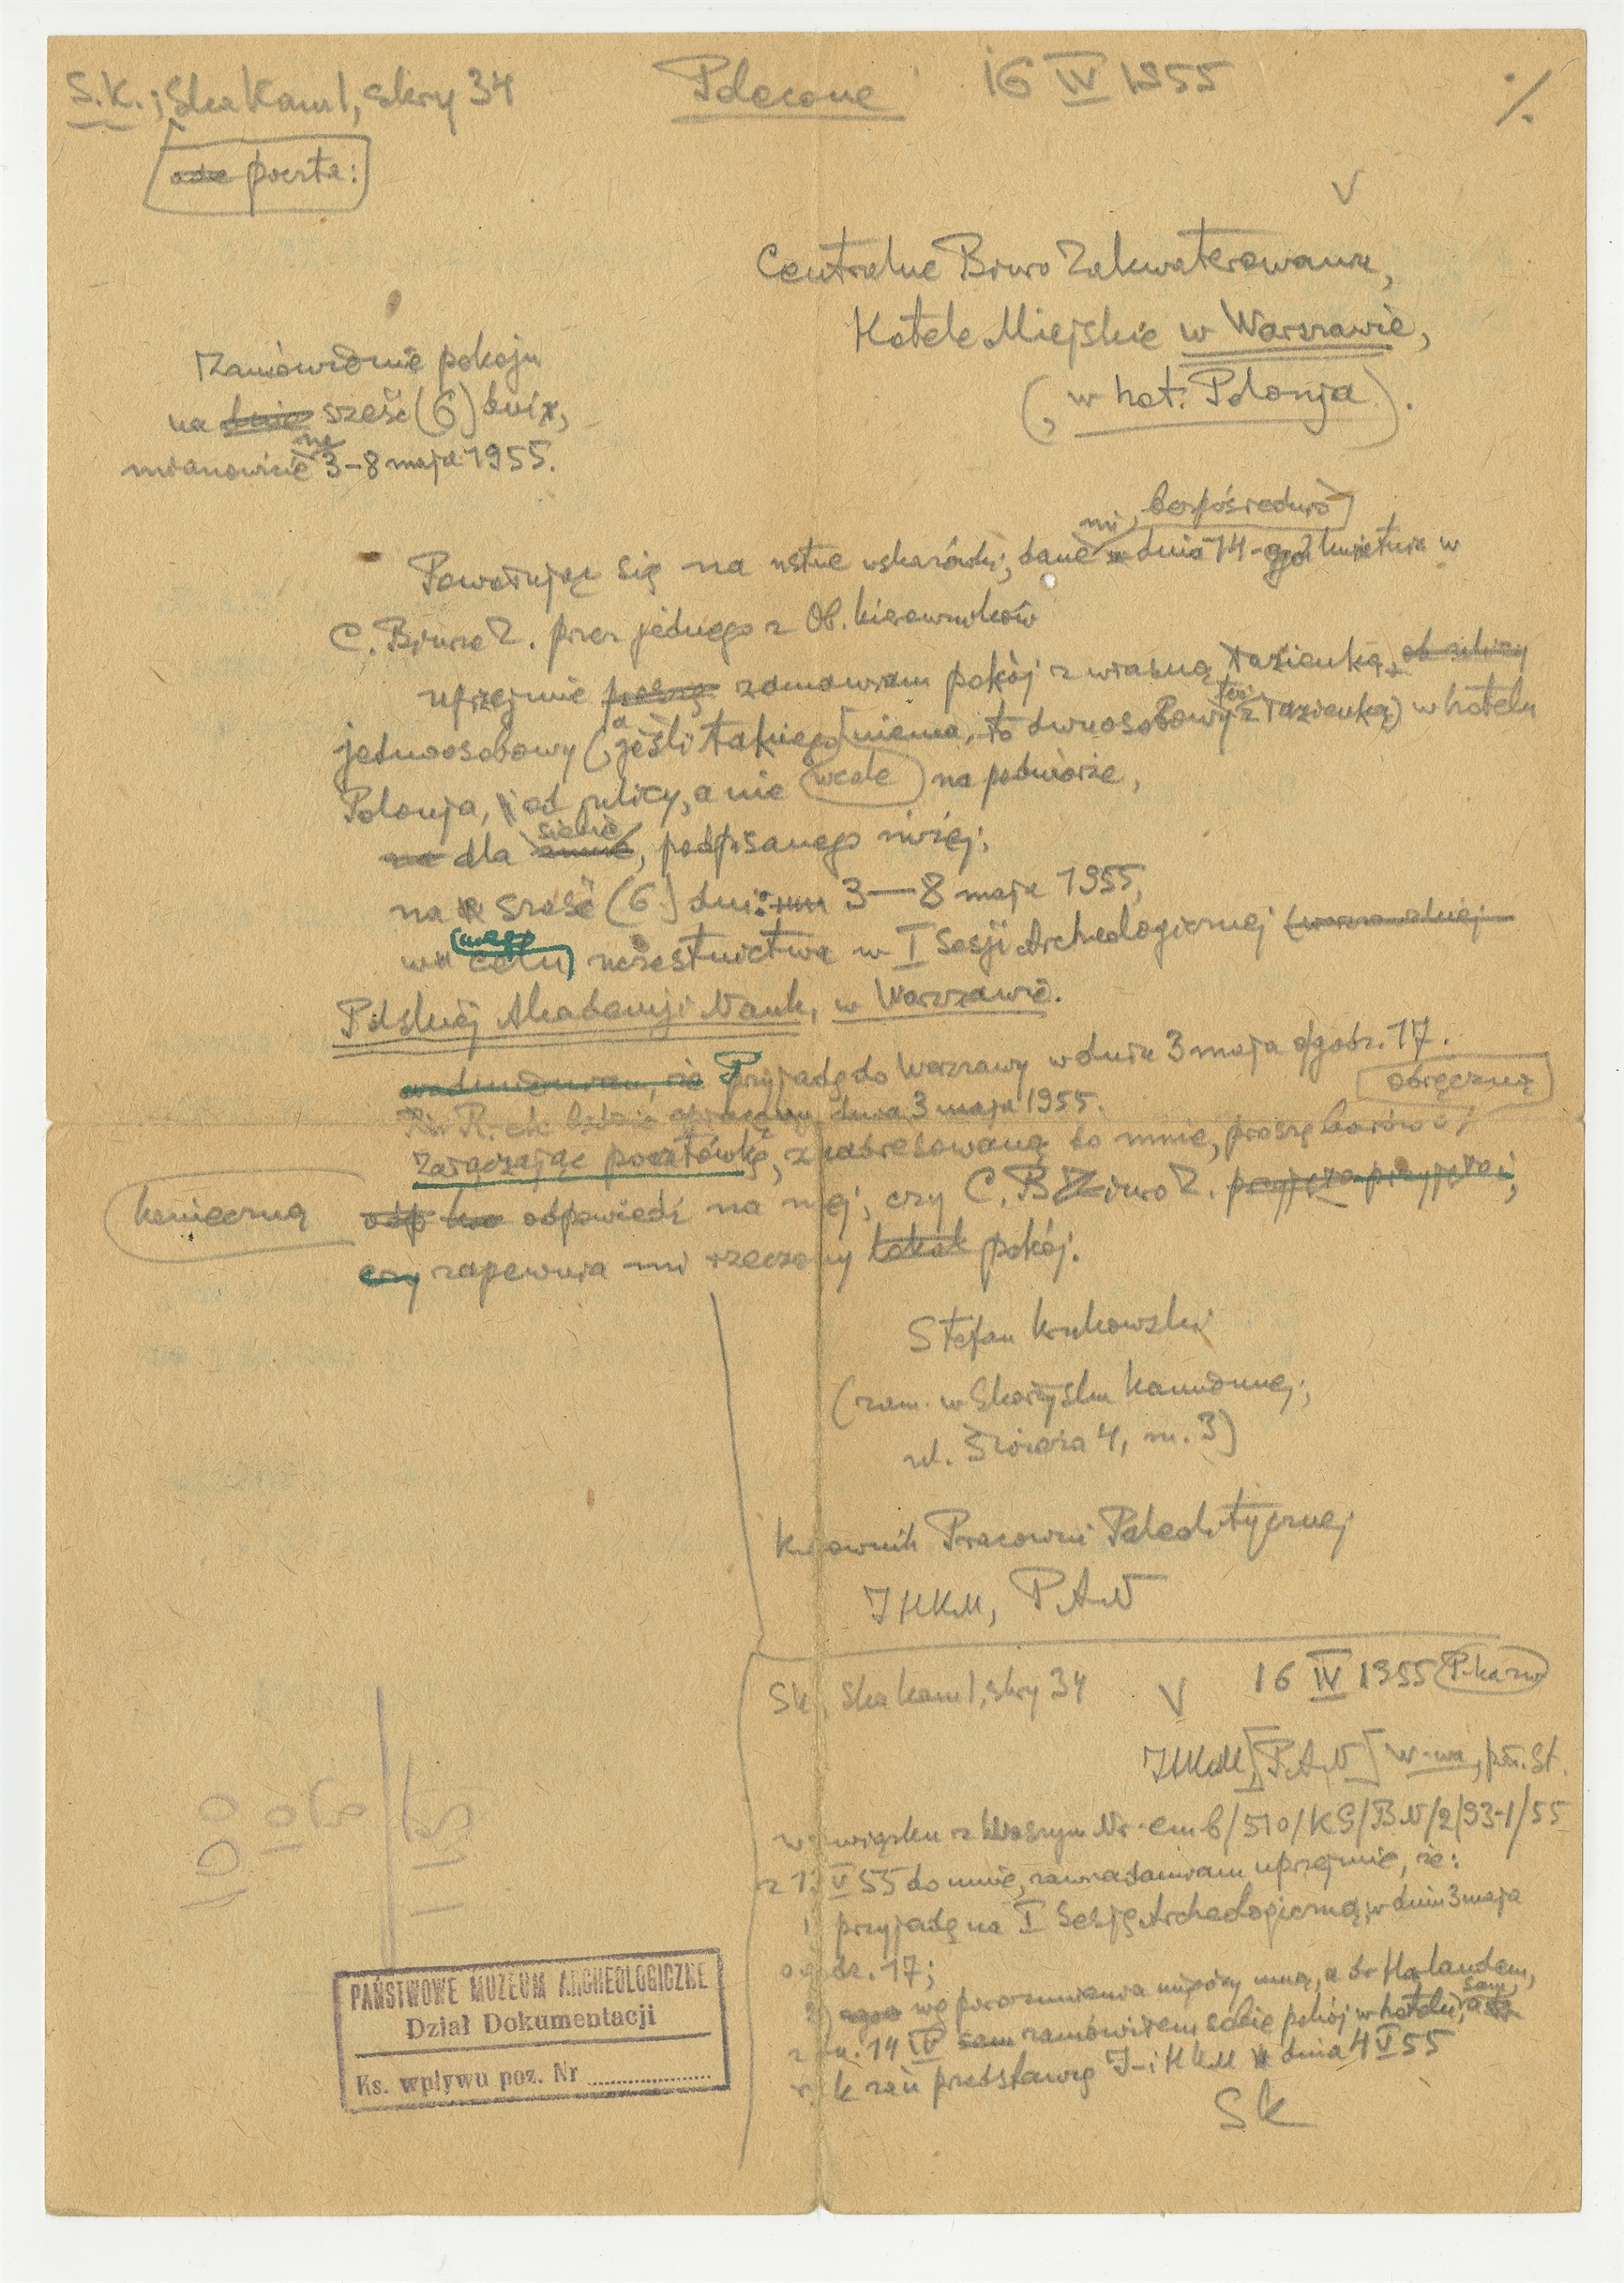 S.K.; Ska Kam I, skry 34
Polecone 16 IV 1955 ·/.
poczta:
V
Centralne Biuro Zakwaterowania,
Hotele Miejskie w Warszawie,
(, w hot. Polonja).
Zamówienie pokoju
na dnie sześć (6) dni,
mianowicie na 3–8 maja 1955.
mi bezpośrednio
Powołując się na ustne wskazówki, dane dnia 14-go kwietnia w
C. Biurze Z. przez jednego z Ob. kierowników
uprzejmie proszę zamawiam pokój z własną łazienką, od ulicy
jednoosobowy (, a jeśli takiego niema, to dwuosobowy też z łazienką) w hotelu
Polonja, od ulicy, a nie wcale na podwórze,
na dla mnie siebie, podpisanego niżej;
na sześć (6) dni: 3—8 maja 1955,
w celu mego uczestnictwa w I Sesji Archeologicznej (warszawskiej
Polskiej Akademji Nauk, w Warszawie.
nadmieniam, że Przyjadę do Warszawy w dniu 3 maja o godz. 17.
dnia 3 maja 1955.
odręczną
Załączając pocztówkę, zaadresowaną do mnie, proszę bardzo o
konieczną
odp odpowiedź na niej, czy C. Biuro Z. przyjęło
czy zapewnia mi rzeczony lokal pokój.
Stefan Krukowski
(zam. w Skarżysku Kamiennej;
ul. Świerża 4, m. 3)
Kierownik Pracowni Paleolitycznej
IHKM, PAN
Sk, Ska Kam I, skry 34 V 16 IV 1955 P-kazno
IHKM, [PAN] W-wa, pł. St.
w związku z Waszym Nr em 6/510/KS/BN/2/93-1/55
z 13 V 55 do mnie, zawiadamiam uprzejmie, że:
1) przyjadę na I Sesję Archeologiczną, w dniu 3 maja
o godz. 17;
2) wg porozumienia między mną, a dr Holandem,
z dn. 14 IV sam zamówiłem sobie pokój w hotelu, sam
r-k zań przedstawię I-i HKM dnia 4 V 55
Sk
100
PAŃSTWOWE MUZEUM ARCHEOLOGICZNE
Dział Dokumentacji
Ks. wpływu poz. Nr ....................